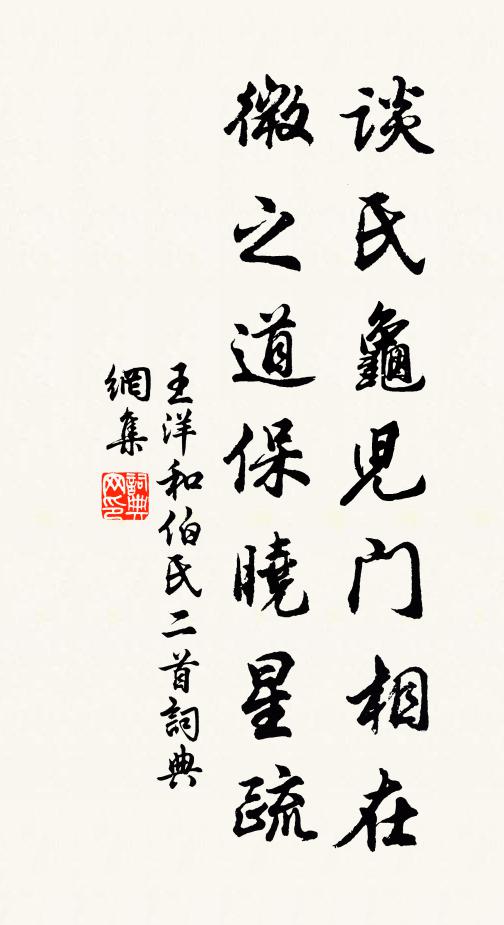 談氏龜児門相在
微之道保曉星疏
王洋和伯氏二首詞典
網集
詞典
网印